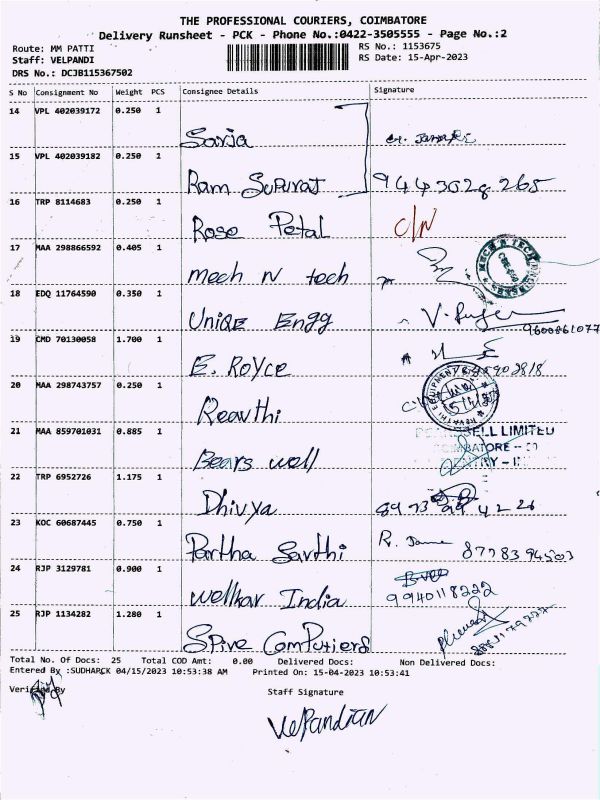 THE PROFESSIONAL COURIERS, COIMBATORE
Delivery Runsheet - PCK - Phone No.:0422-3505555 - Page No.:2
Route: MM PATTI RS No.: 1153675
Staff: VELPANDI RS Date: 15-Apr-2023
DRS No.: DCJB115367502
S No Consignment No Weight PCS Consignee Details Signature
14 VPL 402039172 0.250 1
Sarja
15 VPL 402039182 0.250 1
Ram Supurat
16 TRP 8114683 0.250 1
Rose Petal C/N
17 MAA 298866592 0.405 1
mech N tech MECH N TECH
18 EDQ 11764590 0.350 1
Uniqe Engg
19 CMD 70130058 1.700 1 9600861077
E. Royce
20 MAA 298743757 0.250 1
Reavthi
21 MAA 859701031 0.885 1 ELL LIMITED
Bears well
22 TRP 6952726 1.175 1
Dhivya
23 KOC 60687445 0.750 1
Partha Sarthi
24 RJP 3129781 0.900 1
wellkar India 9940118222
25 RJP 1134282 1.280 1
Spive Computiers
Total No. Of Docs: 25 Total COD Amt: 0.00 Delivered Docs: Non Delivered Docs:
Entered By :SUDHAPCK 04/15/2023 10:53:38 AM Printed On: 15-04-2023 10:53:41
Verified By Staff Signature
VelPandian